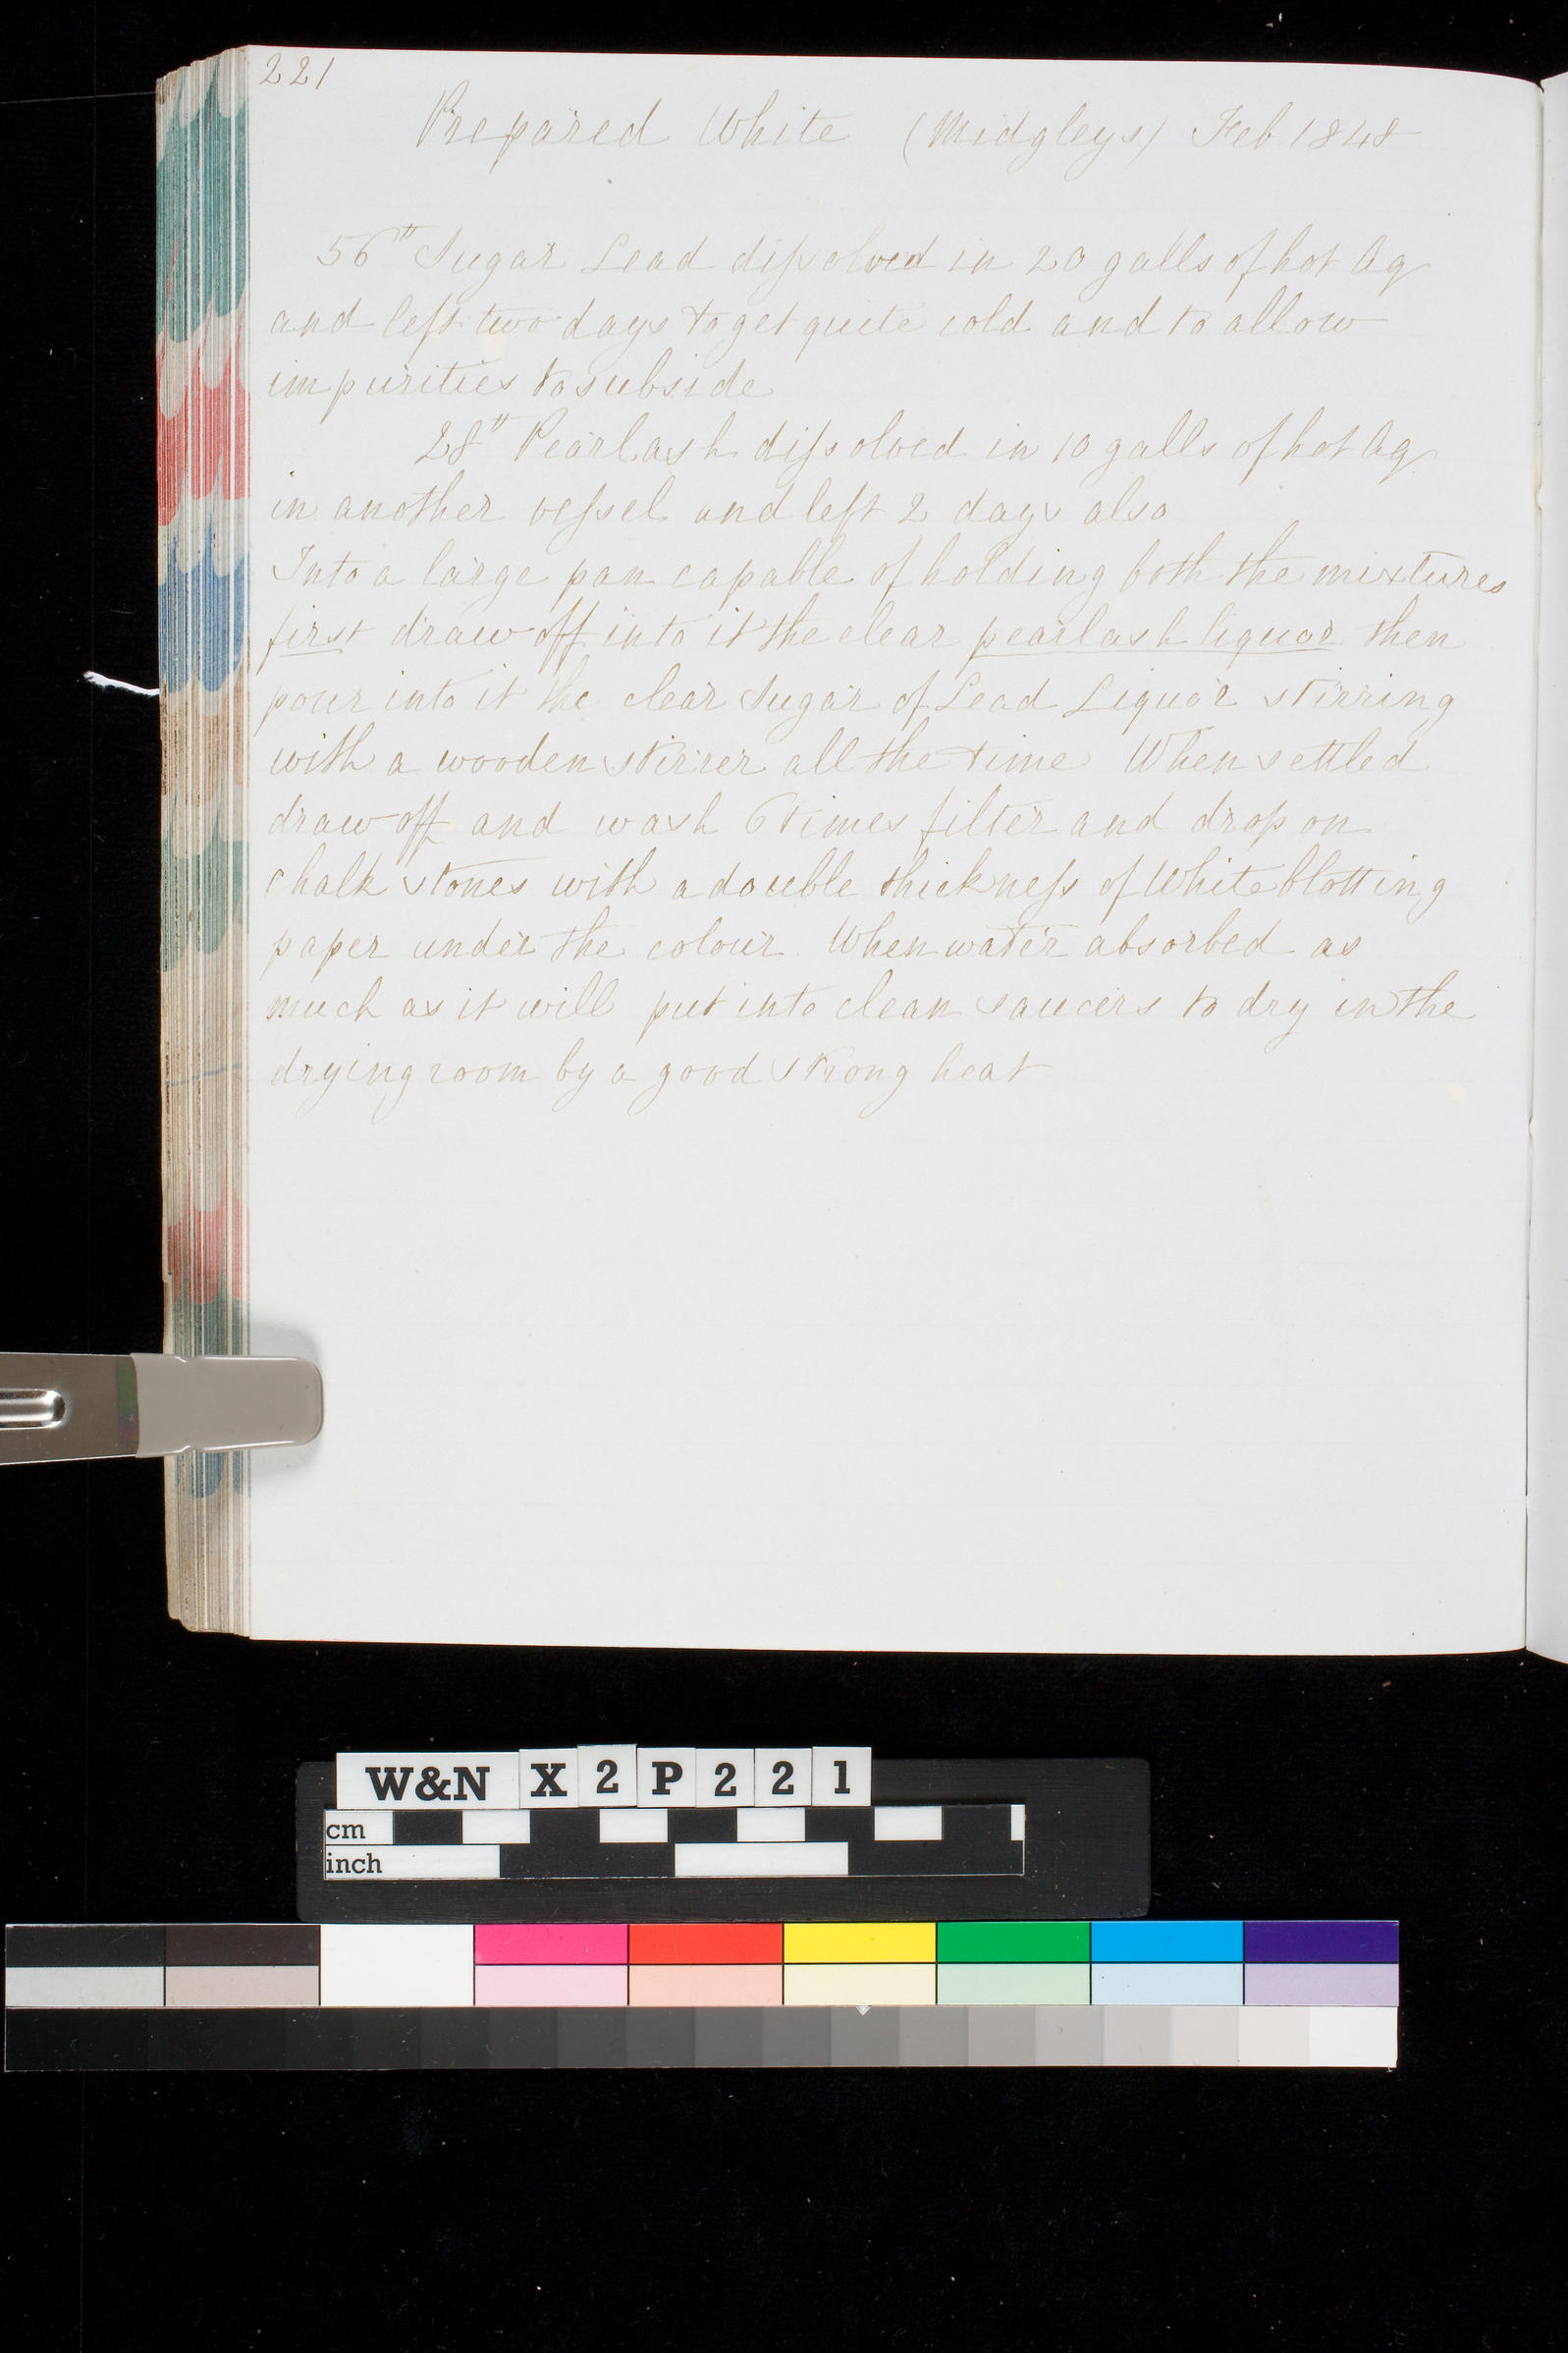 221
Prepared White (Midgleys) Feb 1848
56" Sugar Lead dissolved in 20 galls of hot Aq
and left two days to get quite cold and to allow
impurities to subside
28" Pearlash dissolved in 10 galls of hot Aq
in another vessel and left 2 days also
Into a large pan capable of holding both the mixtures
first draw off into it the clear pearlash liquor then
pour into it the clear Sugar of Lead Liquor stirring
with a wooden stirrer all the time When settled
draw off and wash 6 times filter and drop on
chalk stones with a double thickness of White blotting
paper under the colour. When water absorbed as
much as it will put into clean saucers to dry in the
drying room by a good strong heat
W&N X2P221
cm
inch